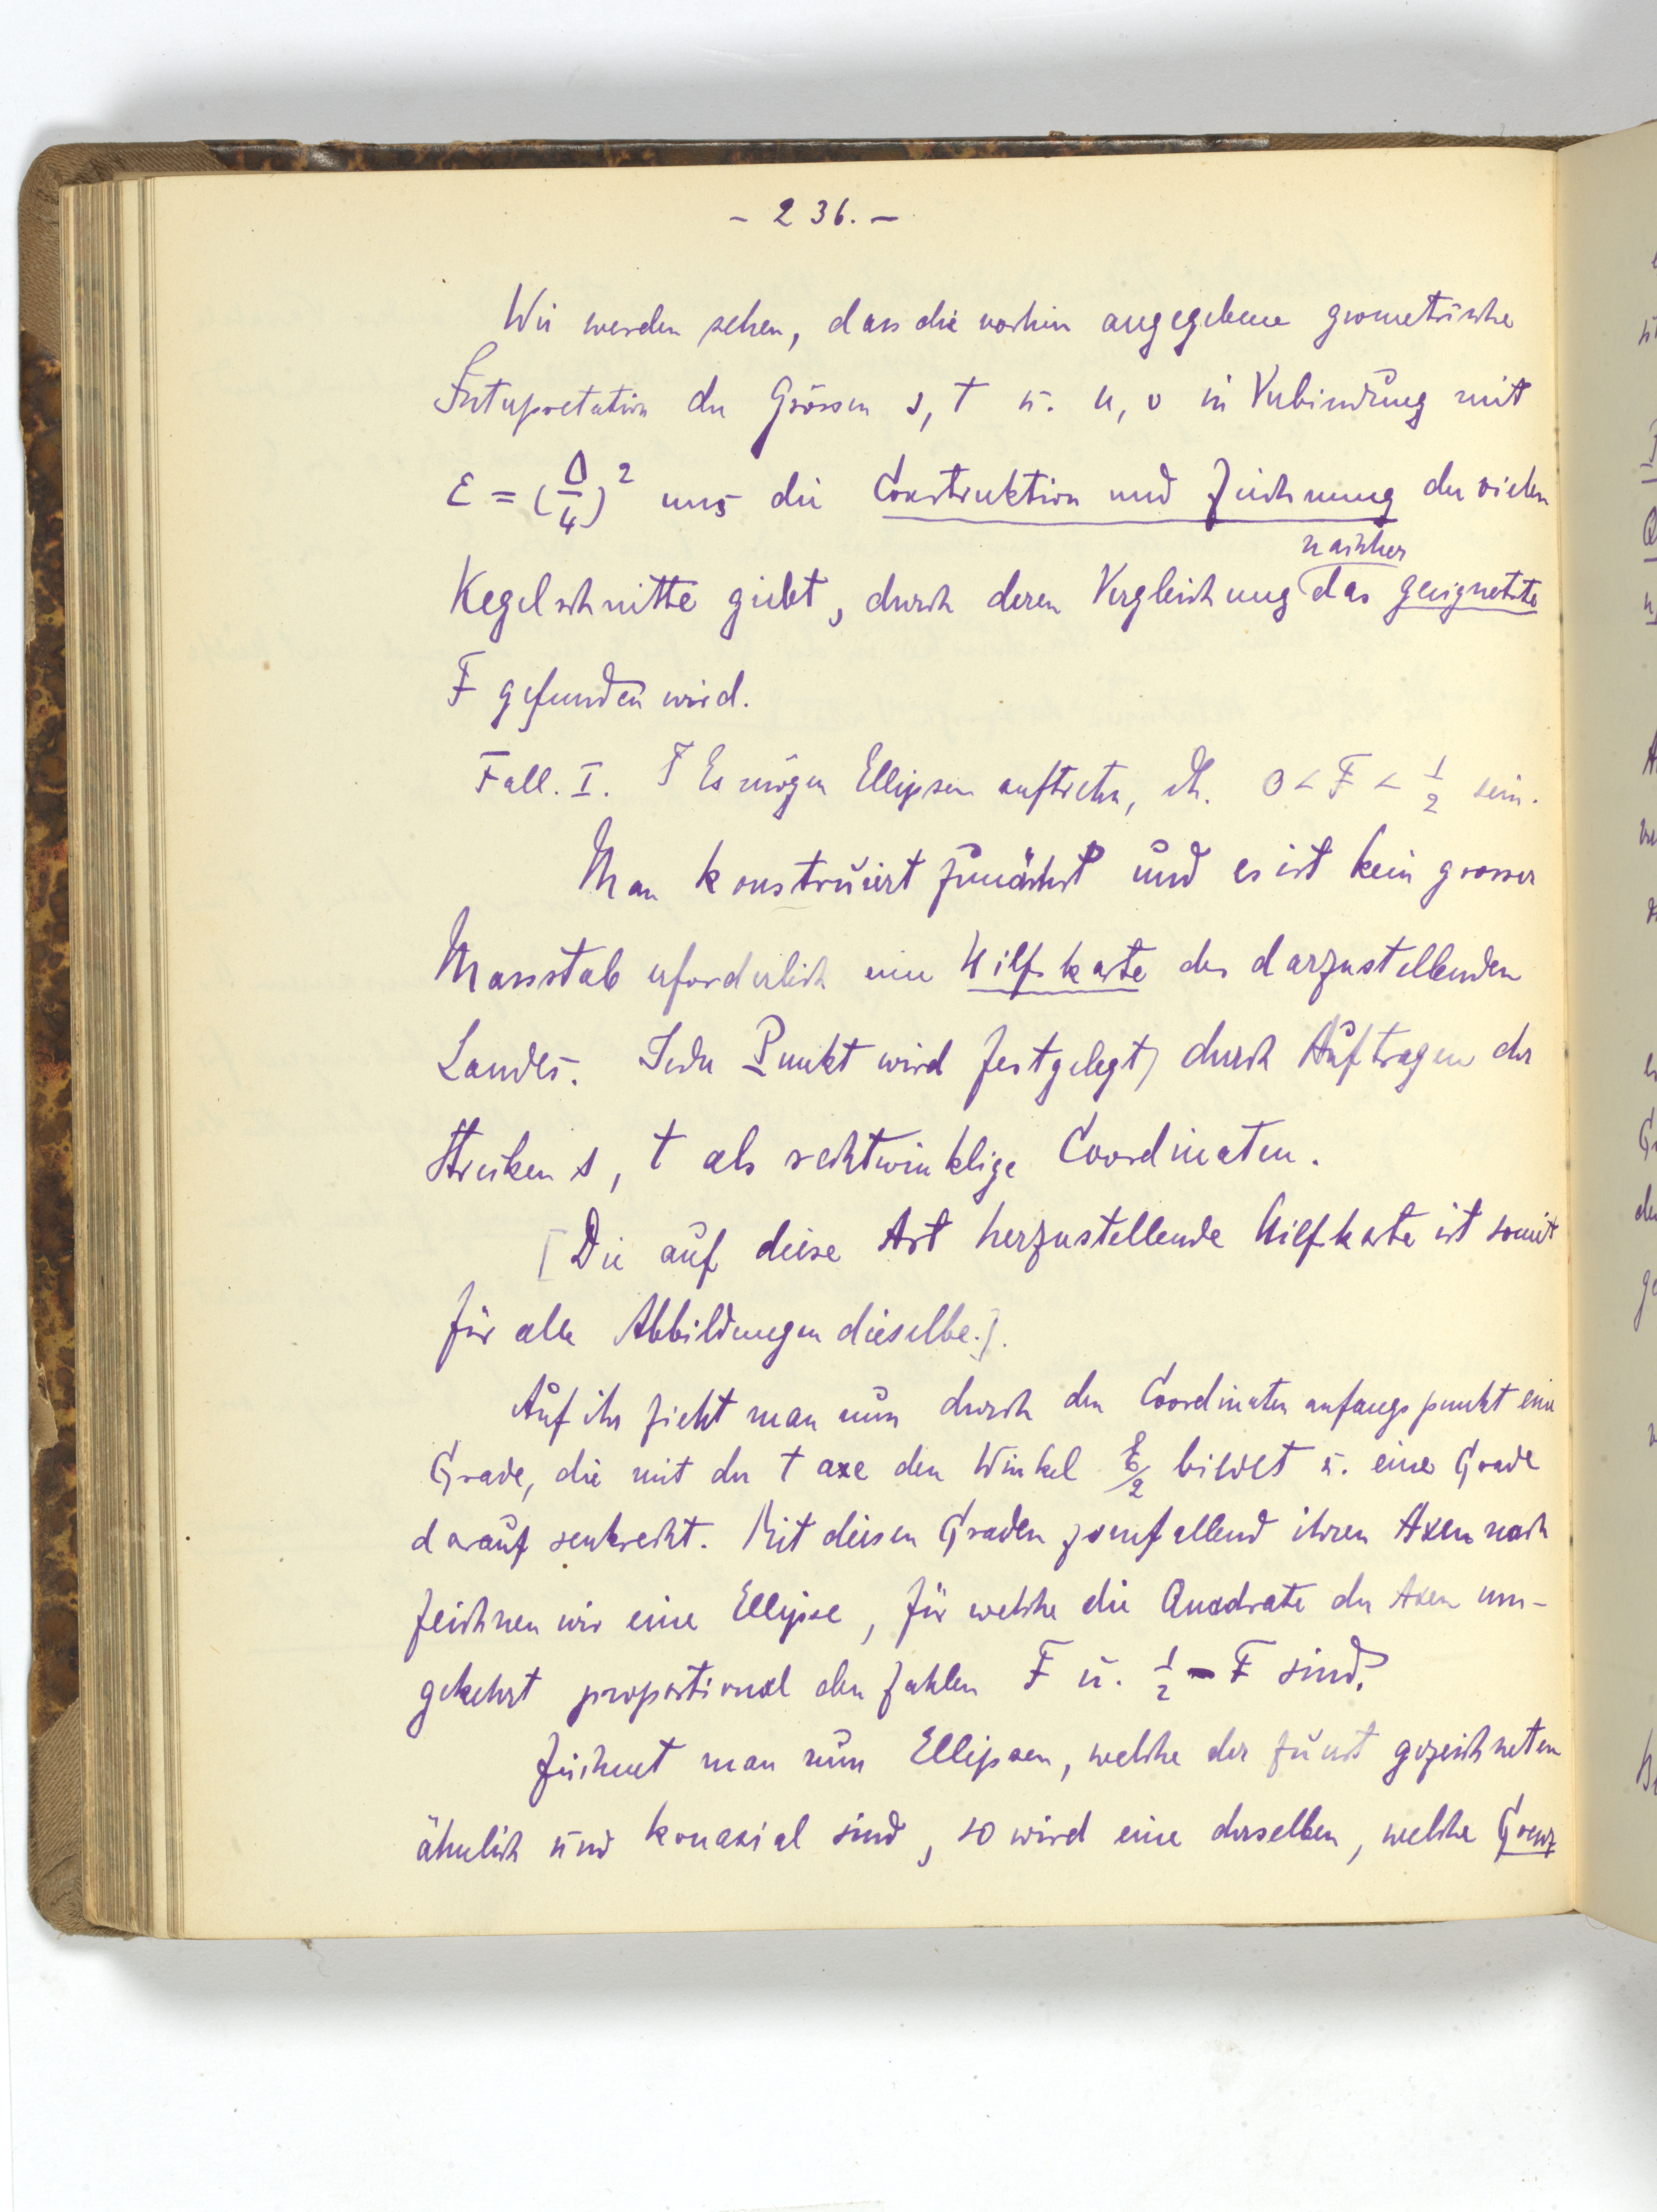 - 236. -
Wir werden sehen, dass die vorhin angegebene geometrische
Interpretation der Grössen s, t u. u, v in Verbindung mit
ε = (Δ/4)² uns die Construktion und Zeichnung der vielen
nachher
Kegelschnitte giebt, durch deren Vergleichung das geeignetste
F gefunden wird.
Fall. I. Es mögen Ellipsen auftreten, dh. 0 < F < 1/2 sein.
Man konstruiert zunächst und es ist kein grosser
Massstab erforderlich eine Hilfskarte des darzustellenden
Landes. Jeder Punkt wird festgelegt durch Auftragen der
Strecken s, t als rechtwinklige Coordinaten.
[Die auf diese Art herzustellende Hilfkarte ist somit
für alle Abbildungen dieselbe.].
Auf ihr zieht man nun durch den Coordinatenanfangspunkt eine
Grade, die mit der t axe den Winkel /2 bildet u. eine Grade
darauf senkrecht. Mit diesen Graden zsmfallend ihren Axen nach
zeichnen wir eine Ellipse, für welche die Quadrate der Axen um-
gekehrt proportional den Zahlen F u. 1/2 - F sind.
Zeichnet man nun Ellipsen, welche der zuerst gezeichneten
ähnlich und konaxial sind, so wird eine derselben, welche Grenz